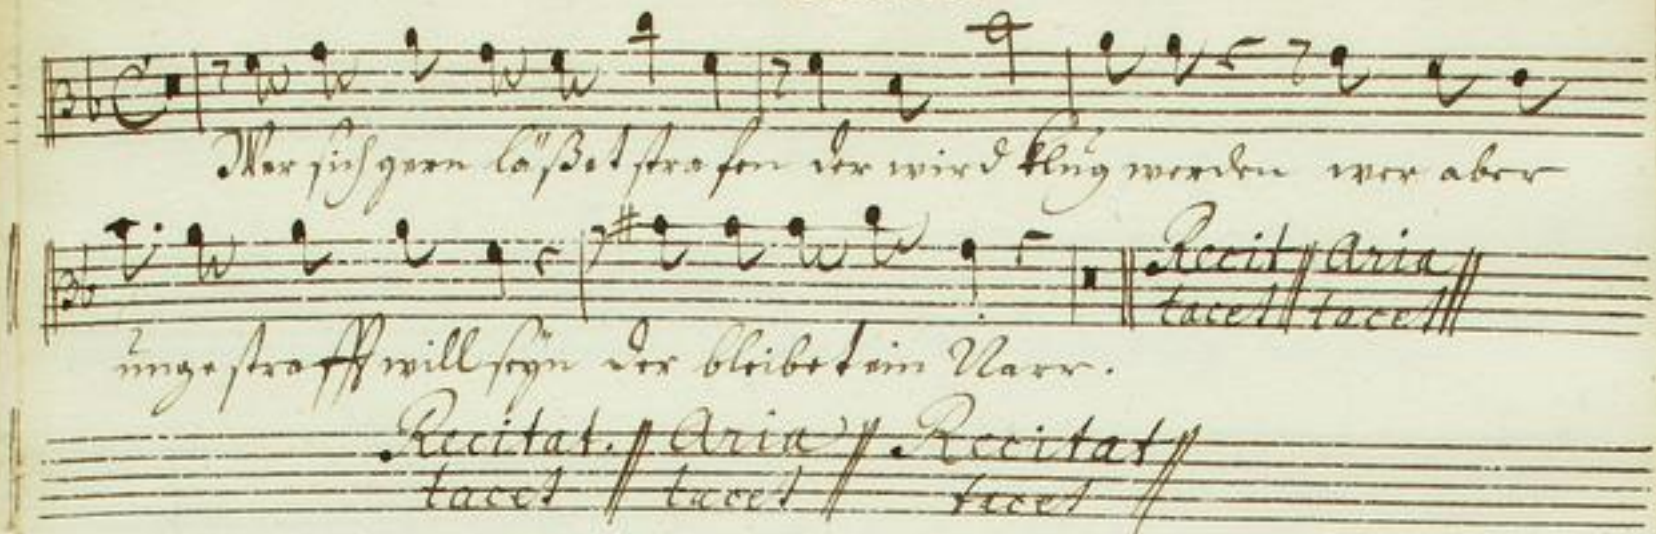 Wer sich gern läßet strafen der wird klug werden wer aber
Recit // Aria //
tacet // tacet //
ungestrafft will seyn der bleibet ein Narr.
Recitat. // Aria // Recitat //
tacet // tacet // tacet //